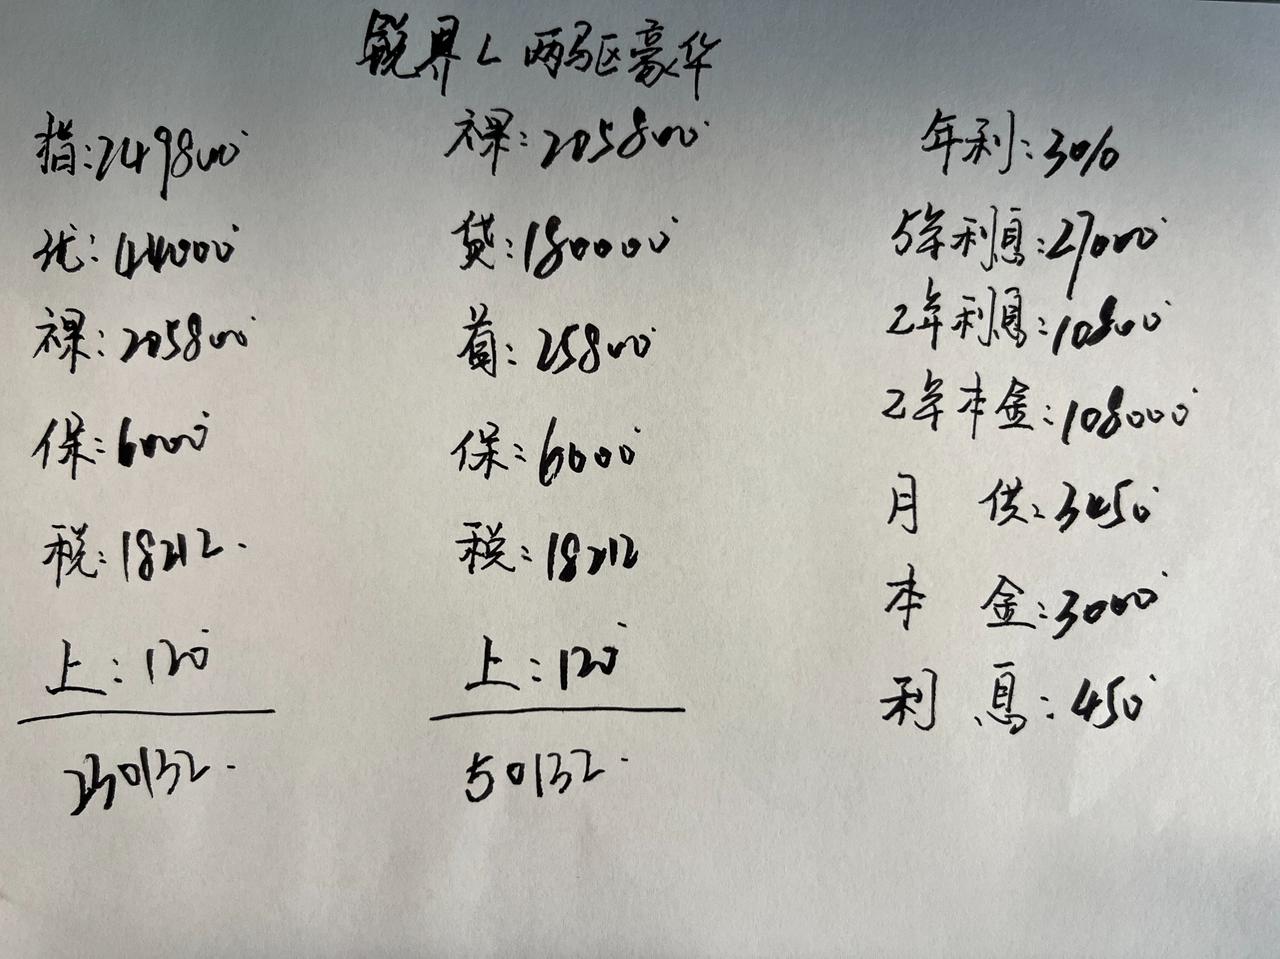 锐界L 两驱豪华
指:249800
优:44000
裸:205800
保:6000
税:18212.
上:120
230132.
裸:205800
贷:180000
首:25800
保:6000
税:18212
上:120
50132.
年利:3%
5年利息:27000
2年利息:10800
2年本金:108000
月 供:3450
本 金:3000
利 息:450